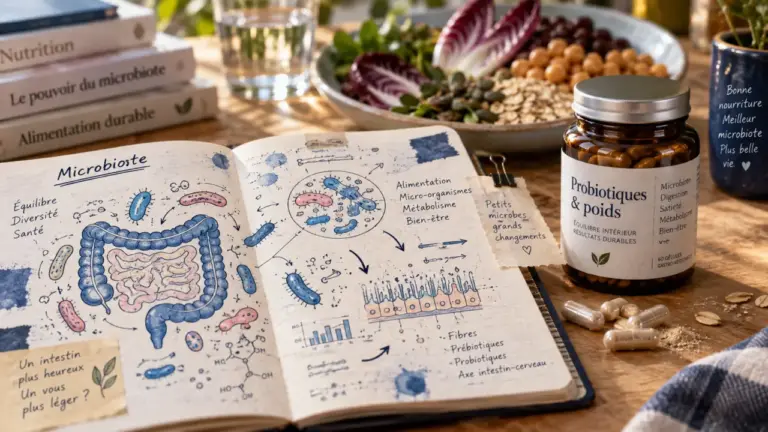 Nutrition
Le pouvoir du microbiote
Alimentation durable
Microbiote
Équilibre
Diversité
Santé
Un intestin
plus heureux
Un vous
plus léger ?
Alimentation
Micro-organismes
Métabolisme
Bien-être
Petits
microbes
grands
changements
Fibres
Prébiotiques
Probiotiques
Axe intestin-cerveau
HO
OH
Probiotiques
& poids
ÉQUILIBRE INTÉRIEUR
RÉSULTATS DURABLES
Microbiote
Digestion
Satiété
Métabolisme
Bien-être
Bonne
nourriture
Meilleur
microbiote
Plus belle
vie